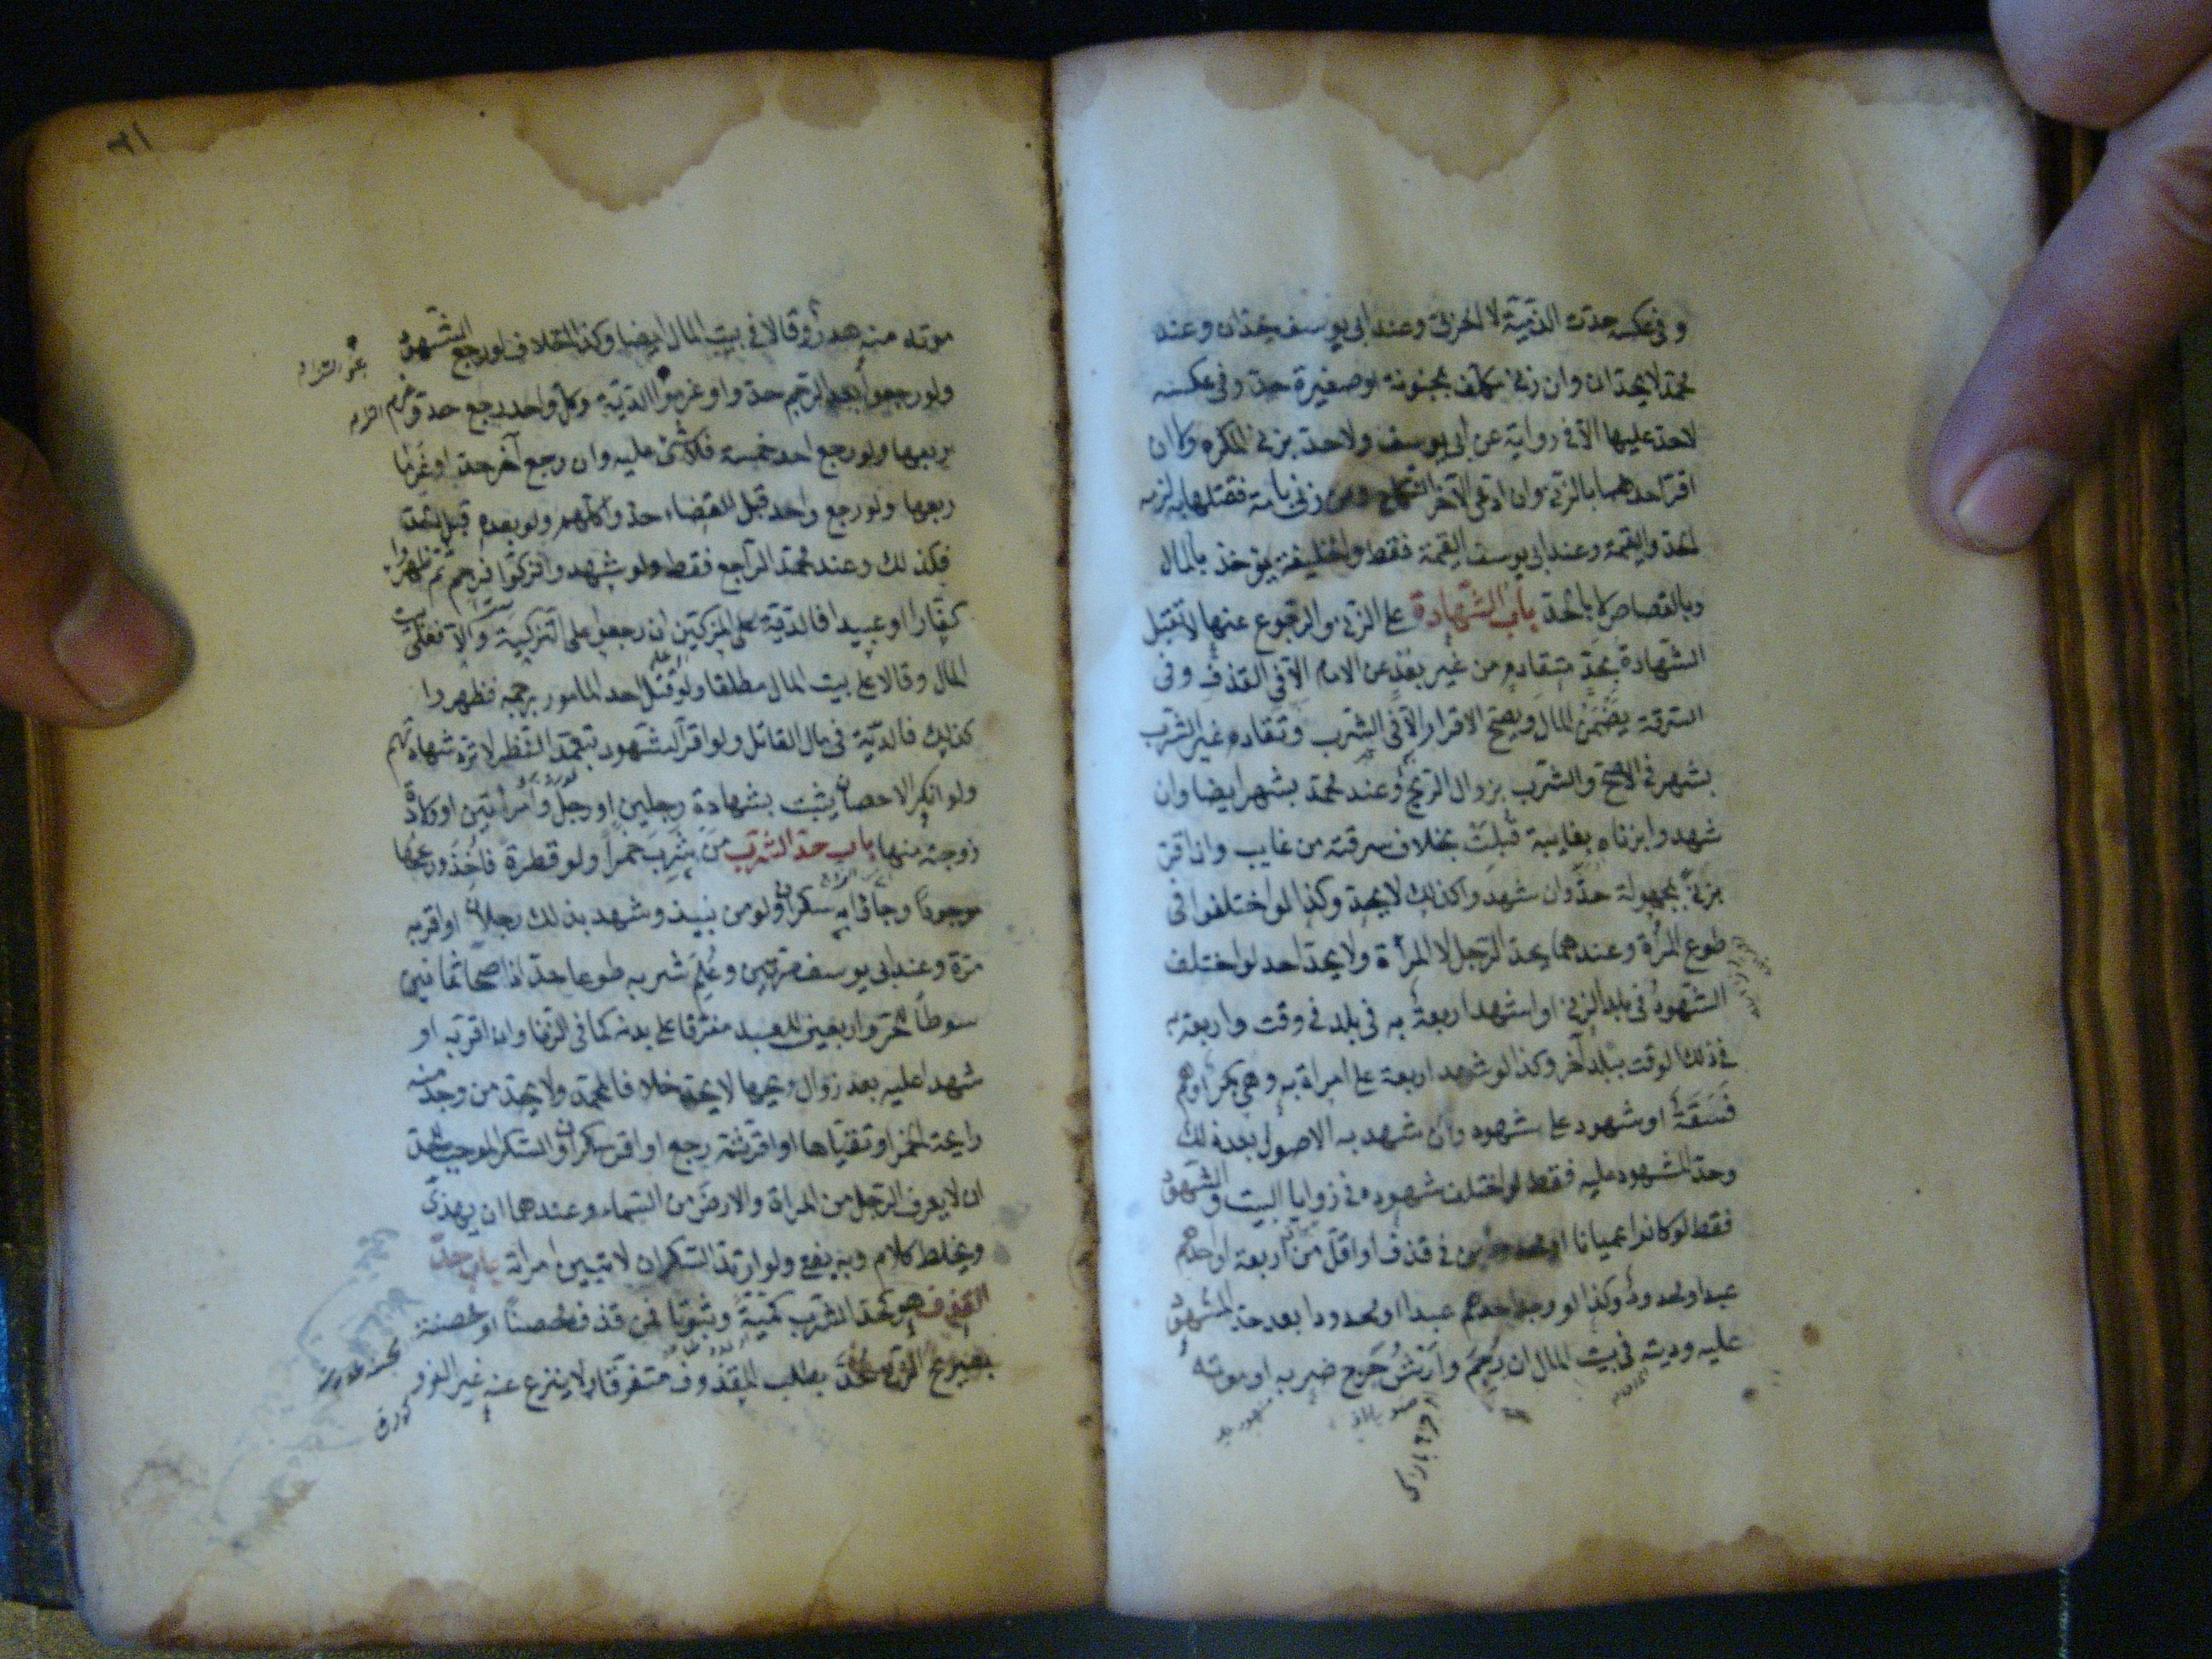 وفى عكسه حدت الذمية لا الحربى وعند ابى يوسف يحدان وعند
محمد لا يحدان وان زنى مكلف بمجنونة او صغيرة حد وفى عكسه
لا حد عليها الا فى رواية عن ابى يوسف ولا حد بزنى المكره ولا ان
اقر احدهما بالزنى وان ادعى الآخر النكاح ومن زنى بامة فقتلها به لزمه
الحد والقيمة وعند ابى يوسف القيمة فقط والخليفة يؤخذ بالمال
وبالقصاص لا بالحد باب الشهادة على الزنى والرجوع عنها لا تقبل
الشهادة بحد متقادم من غير بعد عن الامام الا فى القذف وفى
السرقة يضمن المال ويصح الاقرار الا فى الشرب وتقادم غير الشرب
بشهر فى الاصح والشرب بزوال الريح وعند محمد بشهر ايضا وان
شهدوا بزناه بغايبة قبلت بخلاف سرقته من غايب وان اقر
بزنى بمجهولة حد وان شهدوا كذلك لا يحد وكذا لو اختلفوا فى
طوع المرأة وعندهما يحد الرجل لا المرأة ولا يحد احد لو اختلف
الشهود فى بلد الزنى او شهد اربعة به فى بلد فى وقت واربعة به
فى ذلك الوقت ببلد آخر وكذا لو شهد اربعة على امراة به وهى بكر او هم
فسقة او شهود على شهود وان شهد به الاصول بعد ذلك
وحد المشهود عليه فقط لو اختلف شهوده فى زوايا البيت والشهود
فقط لو كانوا عميانا او محدودين فى قذف او اقل من اربعة او احدهم
عبد او محدود وكذا لو وجد احدهم عبدا او محدودا بعد حد المشهود
عليه وديته فى بيت المال ان رجم وارش جرح ضربه او موته
موته منه هدر وقالا فى بيت المال ايضا وكذا الخلاف لو رجع الشهود
ولو رجعوا بعد الرجم حدوا وغرموا الدية وكل واحد رجع حد وغرم
ربعها ولو رجع احد خمسة فلا شئ عليه وان رجع آخر حدا وغرما
ربعها ولو رجع واحد قبل القضاء حدوا كلهم ولو بعده قبل الحد
فكذلك وعند محمد الراجع فقط ولو شهدوا فزكوا فرجم ثم ظهروا
كفارا او عبيدا فالدية على المزكين ان رجعوا على التزكية والا فعلى بيت
المال وقالا على بيت المال مطلقا ولو قتل احد المامور برجمه فظهروا
كذلك فالدية فى مال القاتل ولو اقر الشهود بتعمد النظر لا ترد شهادتهم
ولو انكر الاحصان يثبت بشهادة رجلين او رجل وامرأتين او ولادة
زوجته منها باب حد الشرب من شرب خمرا ولو قطرة فاخذ وريحها
موجود او جاؤا به سكران ولو من نبيذ وشهد بذلك رجلان او اقر به
مرة وعند ابى يوسف مرتين وعلم شربه طوعا حد اذا صحا ثمانين
سوطا للحر واربعين للعبد مفرقا على بدنه كما فى الزنا وان اقر به او
شهدا عليه بعد زوال ريحها لا يحد خلافا لمحمد ولا يحد من وجد منه
رايحة الخمر او تقيأها او اقر ثم رجع او اقر سكران والسكر الموجب للحد
ان لا يعرف الرجل من المراة والارض من السماء وعندهما ان يهذى
ويخلط كلامه وبه يفتى ولو ارتد السكران لا تبين امراته باب حد
القذف هو كحد الشرب كمية وثبوتا فمن قذف محصنا او محصنة
بصريح الزنا حد بطلب المقذوف متفرقا ولا ينزع عنه غير الفرو